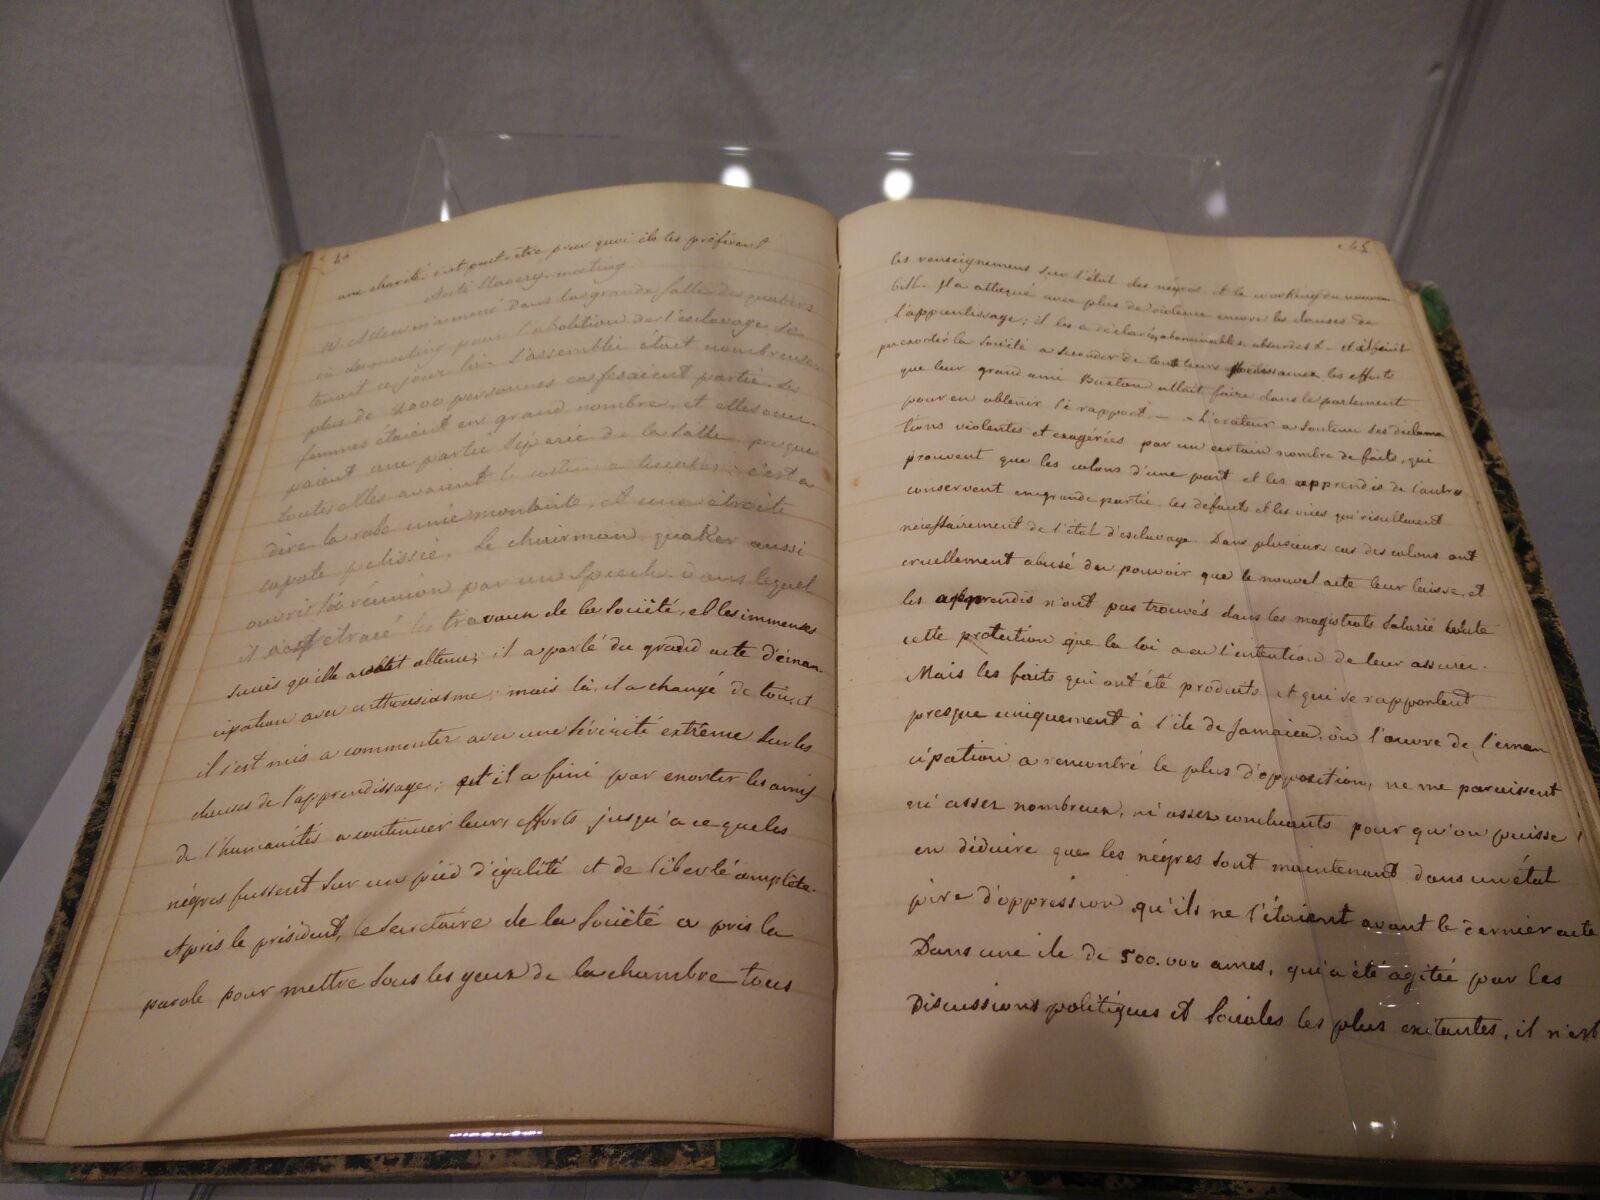 44
une charité; c'est peut-être pour quoi ils les préfèrent
Anti Slavery meeting
W. Allen m'a mené dans la grande salle des quakers
où du meeting pour l'abolition de l'esclavage se
tenait ce jour là. L'assemblée était nombreuse
plus de 4000 personnes en fesaient partie. Les
femmes étaient en grand nombre, et elles occu-
paient une partie séparée de la salle presque
toutes elles avaient le costume c'est a
dire la robe unie montante, et une étroite
capote pelissée. Le chairman quaker aussi
ouvrit la réunion par un Speech dans lequel
il a retracé les travaux de la Société, et les immenses
succès qu'elle avait obtenu; il a parlé du grand acte d'éman-
cipation avec enthousiasme; mais là, il a changé de ton, et
il s'est mis a commenter avec une sévérité extrême sur les
clauses de l'apprendissage; et il a fini par exorter les amis
de l'humanité a continuer leurs efforts jusqu'a ce que les
négres fussent sur un pied d'égalité et de liberté complète.
Après le président, le secretaire de la Société a pris la
parole pour mettre sous les yeux de la chambre tous
45
les renseignemens sur l'état des négres et le working du nouveau
bill. Il a attaqué avec plus de violence encore les clauses de
l'apprentissage; il les a déclarés abominables, absurdes & et il a fini
par exorter la Société a seconder de toute leurs les efforts
que leur grand ami Buxton allait faire dans le parlement
pour en obtenir le rapport. — L'orateur a soutenu ses déclama
tions violentes et exagérées par un certain nombre de faits, qui
prouvent que les colons d'une part et les apprendis de l'autre
conservent en grande partie les défauts et les vices qui résultent
nécessairement de l'état d'esclavage. Dans plusieurs cas des colons ont
cruellement abusé du pouvoir que le nouvel acte leur laisse, et
les apprendis n'ont pas trouvés dans les magistrats salarié toute
cette protection que la loi a eu l'intention de leur assurer.
Mais les faits qui ont été produits et qui se rapportent
presque uniquement à l'ile de Jamaica, où l'œuvre de l'éman
cipation a rencontré le plus d'opposition, ne me paraissent
ni assez nombreux, ni assez concluants pour qu'on puisse
en déduire que les négres sont maintenant dans un état
pire d'oppression qu'ils ne l'étaient avant le dernier acte
Dans une ile de 500.000 ames, qui a été agitée par les
Discussions politiques et sociales les plus exitantes, il n'est